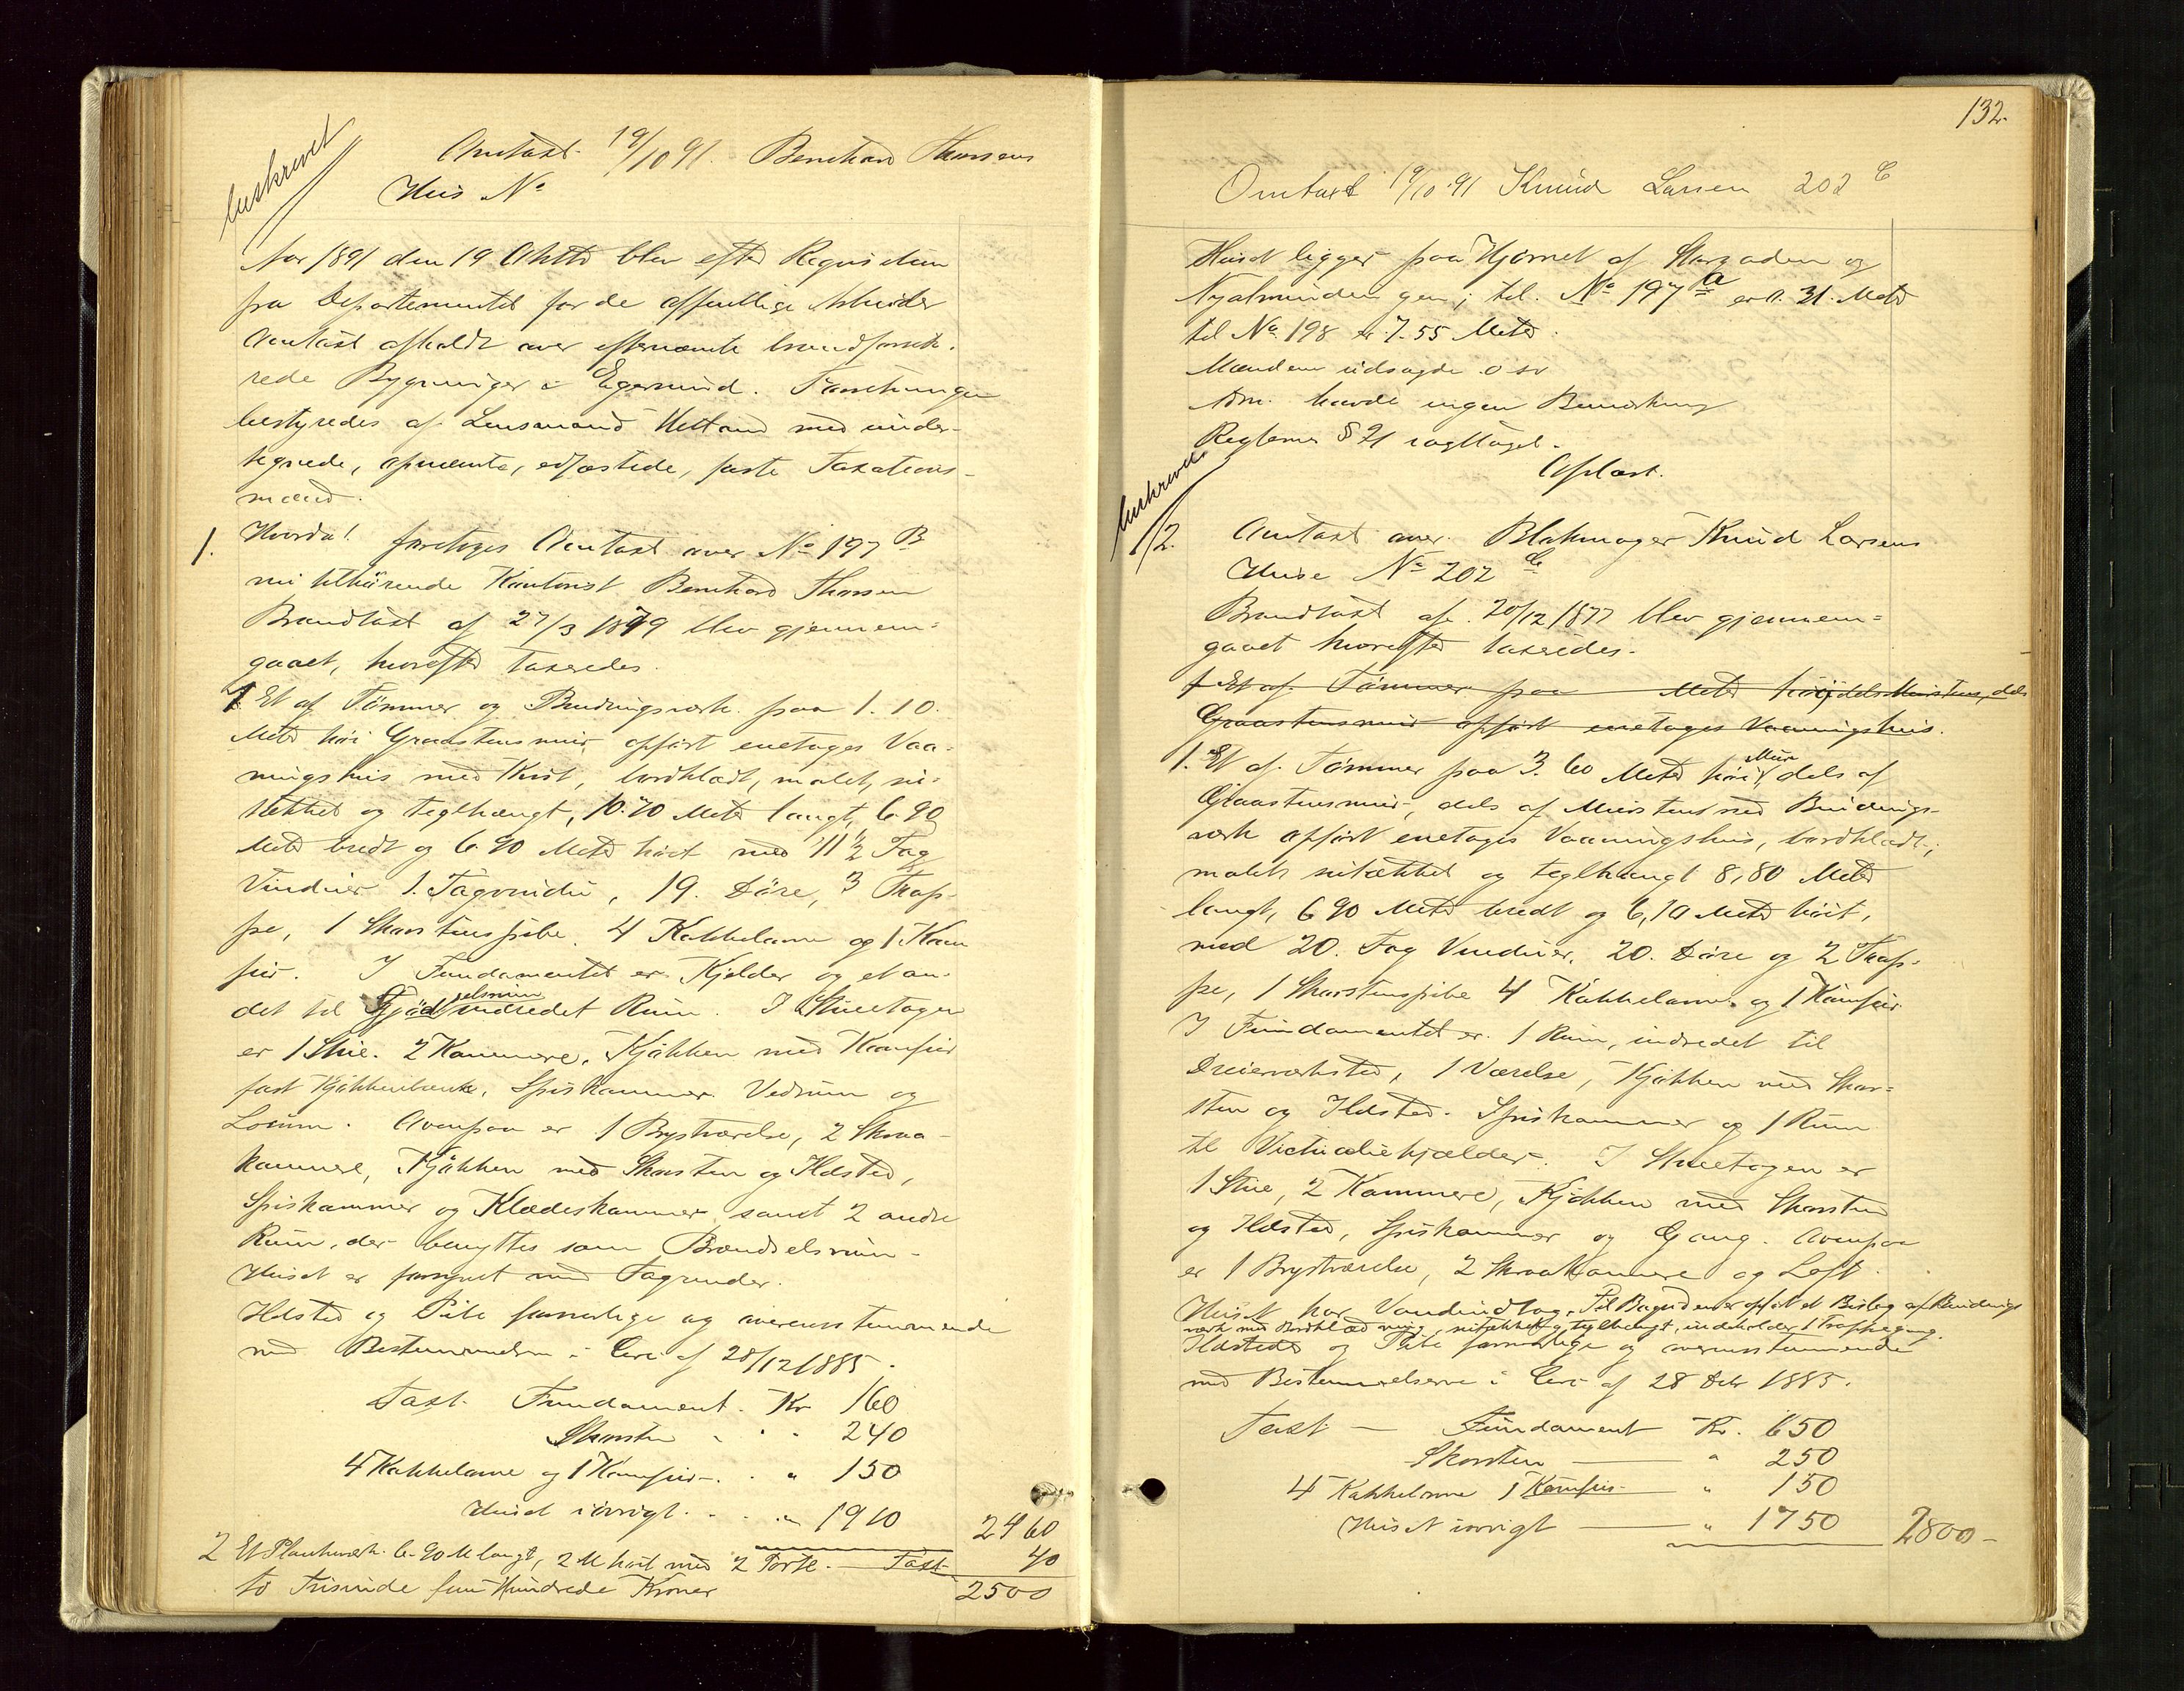 Udskrevet
Omtaxt 19/10 91. Bernhard Thorsens
Hus No
Aar 1891 den 19 Oktbr blev efter Requisition
fra Departementet for de offentlige Arbeider
Omtaxt afholdt over efternævnte brandforsik-
rede Bygninger i Egersund. Forretningen
bestyredes af Lensmand Hetland med under-
tegnede, opnævnte, edfæstede, faste Taxations-
mænd.
1. Hvorda! foretoges Omtaxt over No 197 B
nu tilhørende Kontorist Bernhard Thorsen
Brandtaxt af 27/3 1879 blev gjennem-
gaaet, hvorefter taxeredes.
1. Et af Tømmer og Bindingsværk paa 1.10.
Meter høi Graastensmur opført enetages Vaa-
ningshus med Kvist, bordklædt, malet, ni-
tækket og teglhængt, 10.70 Meter langt, 6.90
Meter bredt og 6.90 Meter høit med 11 1/2 Fag
Vinduer 1. Tagvindu, 19. Døre, 3 Trap-
pe, 1 Skorstenspibe. 4 Kakkelovne og 1 Kom
fur. I Fundamentet er Kjelder og et an-
det til Gjødselsrum indredet Rum. I Stueetagen
er 1 Stue. 2 Kammere, Kjøkken med Komfur
fast Kjøkkenbænk, Spiskammer Vedrum og
Lorum. Ovenpaa er 1 Brystværelse, 2 Skraa-
kammere, Kjøkken med Skorsten og Ildsted,
Spiskammer og Klædeskammer samt 2 andre
Rum, der benyttes som Brændselsrum.
Huset er forsynet med Tagrender.
Ildsted og Pibe forsvarlige og overensstemmende
med Bestemmelsen i Circ af 28/12 1885.
Taxt. Fundament. Kr 160
Skorsten " 240
4 Kakkelovne og 1 Komfur " 150
Huset iøvrigt " 1910 2460
2 Et Plankeværk 6.90 M langt, 2 M høit med 2 Porte. Taxt 40
to Tusinde fem Hundrede Kroner 2500
132.
Omtaxt 19/10 91 Knud Larsen 202 C
Huset ligger paa Hjørnet af Storgaden og
Nyalminden gen; til No 197 a er 11.31. Meter
til No 198 er 7.55 Meter.
Mændene udsagde o sv
Adm. havde ingen Bemærkning
Reglem § 21 iagttaget.
Oplæst.
Udskrevet
2. Omtaxt over Blokmager Knud Larsens
Huse No 202 C
Brandtaxt af 20/12 1877 blev gjennem-
gaaet hvorefter taxeredes.
1 Et af Tømmer paa Meter høi, dels Mursten, dels
Graastensmur opført enetages Vaaningshus.
1. Et af Tømmer paa 3.60 Meter høi Mur dels af
Graastensmur, dels af Mursten med Bindings-
værk opført enetages Vaaningshus, bordklædt,
malet nitækket og teglhængt 8,80 Meter
langt, 6 90 Meter bredt og 6,10 Meter høit,
med 20. Fag Vinduer, 20. Døre og 2 Trap-
pe, 1 Skorstenspibe 4 Kakkelovne og 1 Komfur
I Fundamentet er 1 Rum, indredet til
Dreierværksted, 1 Værelse, Kjøkken med Skor-
sten og Ildsted. Spiskammer og 1 Rum
til Victualiekjælder. I Stueetagen er
1 Stue, 2 Kammere, Kjøkken med Skorsten
og Ildsted, Spiskammer og Gang. Ovenpaa
er 1 Brystværelse, 2 Skraakammere og Loft.
Huset har Vandindlæg. Til Bagsiden er opført et Bislag af Bindings
værk med Bordklædning, nitækket og teglhængt, indeholder 1 Trappegang.
Ildsteder og Pibe forsvarlige og overensstemmende
med Bestemmelserne i Circ af 28 Debr 1885.
Taxt — Fundament Kr. 650
Skorsten — " 250
4 Kakkelovne 1 Komfur " 150
Huset iøvrigt — " 1750 2800 –